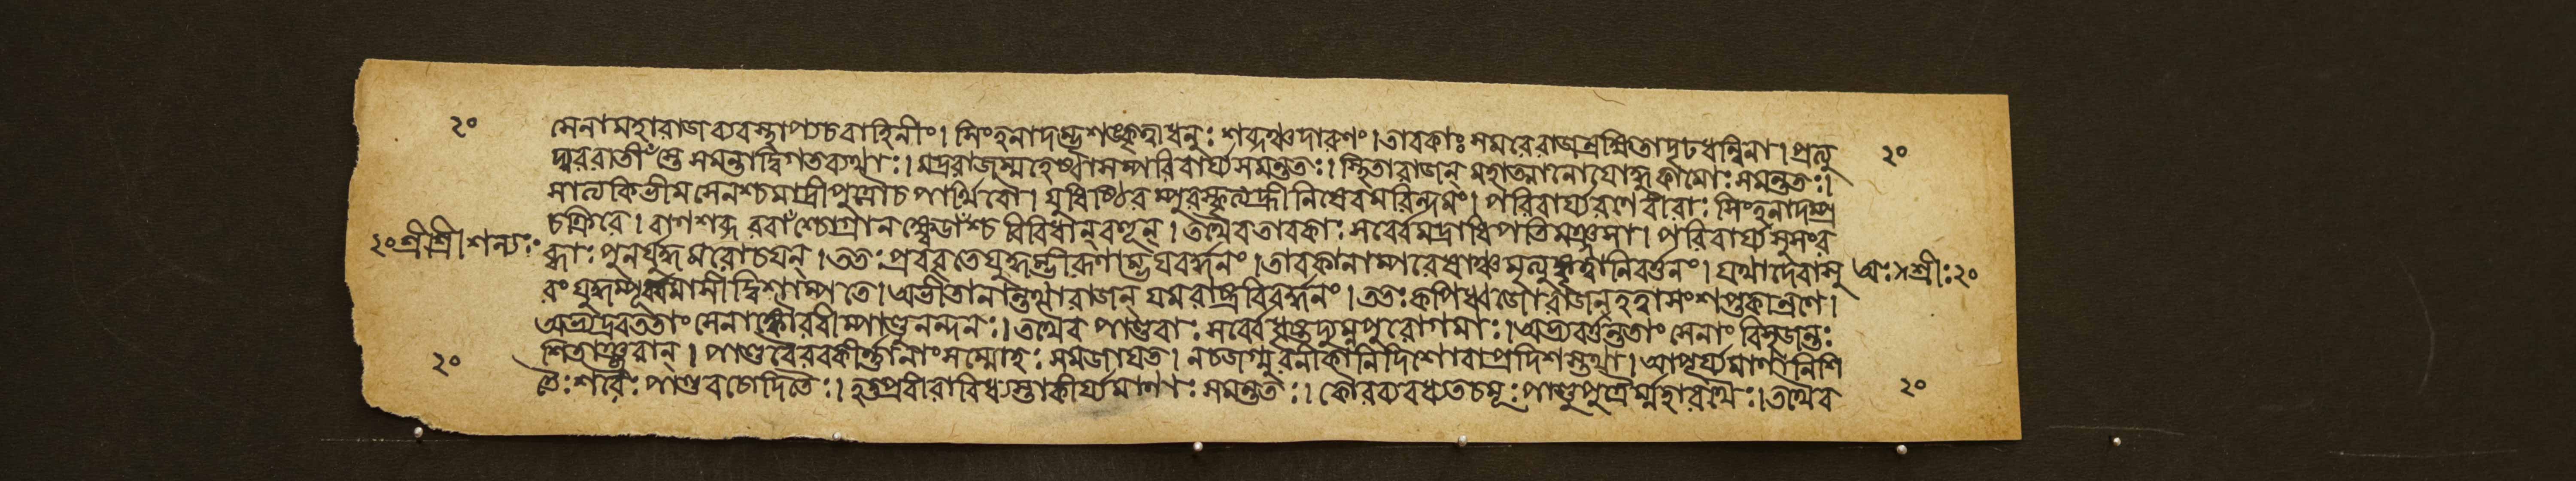 ২০
সেনামহারাজব্যবস্থাপ্যচবাহিনীং। সিংহনাদম্ভৃশঙ্কৃত্বাধনুঃ শব্দঞ্চদারুণং। তাবকাঃ সমরেরাজন্রক্ষিতাদৃঢধন্বিনা। প্রত্যু
২০
দ্যযুররাতীঁস্তে সমন্তাদ্বিগতব্যথাঃ। মদ্ররাজম্মহেষ্বাসম্পরিবার্য্যসমন্ততঃ। স্থিতারাজন্ মহাত্মানোযোদ্ধুকামাঃ সমন্ততঃ।
সাত্যকির্ভীমসেনশ্চমাদ্রীপুত্রৌচপাণ্ডবৌ। যুধিষ্ঠিরম্পুরস্কৃত্যহ্রীনিষেবমরিন্দমং। পরিবার্য্যরণেবীরাঃ সিংহনাদম্প্র
চক্রিরে। বাণশব্দরবাঁশ্চোগ্রানক্ষ্বেডাঁশ্চ বিবিধান্বহূন্। তথৈবতাবকাঃ সর্ব্বেমদ্রাধিপতিমঞ্জসা। পরিবার্য্যসুসংর
২০শ্রীশ্রীশল্যঃ
ব্ধাঃ পুনর্যুদ্ধমরোচযন্। ততঃ প্রববৃতেযুদ্ধম্ভীরূণাম্ভযবর্দ্ধনং। তাবকানাম্পরেষাঞ্চমৃত্যুঙ্কৃত্বানিবর্ত্তনং। যথাদেবাসু
অঃ৯শ্রীঃ২০
রং যুদ্ধম্পূর্ব্বমাসীদ্বিশাম্পতে। অভীতানান্তথারাজন্ যমরাষ্ট্রবিবর্দ্ধনং। ততঃ কপিধ্বজোরাজন্হত্বাসংশপ্তকান্রণে।
অভ্যদ্রবততাংসেনাঙ্কৌরবীম্পাণ্ডুনন্দনঃ। তথৈব পাণ্ডবাঃ সর্ব্বেধৃষ্টদ্যুম্নপুরোগমাঃ। অভ্যবর্ত্তন্ততাং সেনাং বিসৃজন্তঃ
শিতাঞ্ছরান্। পাণ্ডবৈরবকীর্ণানাংসম্মোহঃ সমজাযত। নচজগ্মুরনীকানিদিশোবাপ্রদিশস্তথা। আপূর্য্যমাণানিশি
২০
তৈঃ শরৈঃ পাণ্ডবচোদিতৈঃ। হতপ্রবীরাবিধ্বস্তাকীর্য্যমাণাঃ সমন্ততঃ। কৌরব্যবধ্যতচমূঃ পাণ্ডুপুত্রৈর্ম্মহারথৈঃ। তথৈব
২০